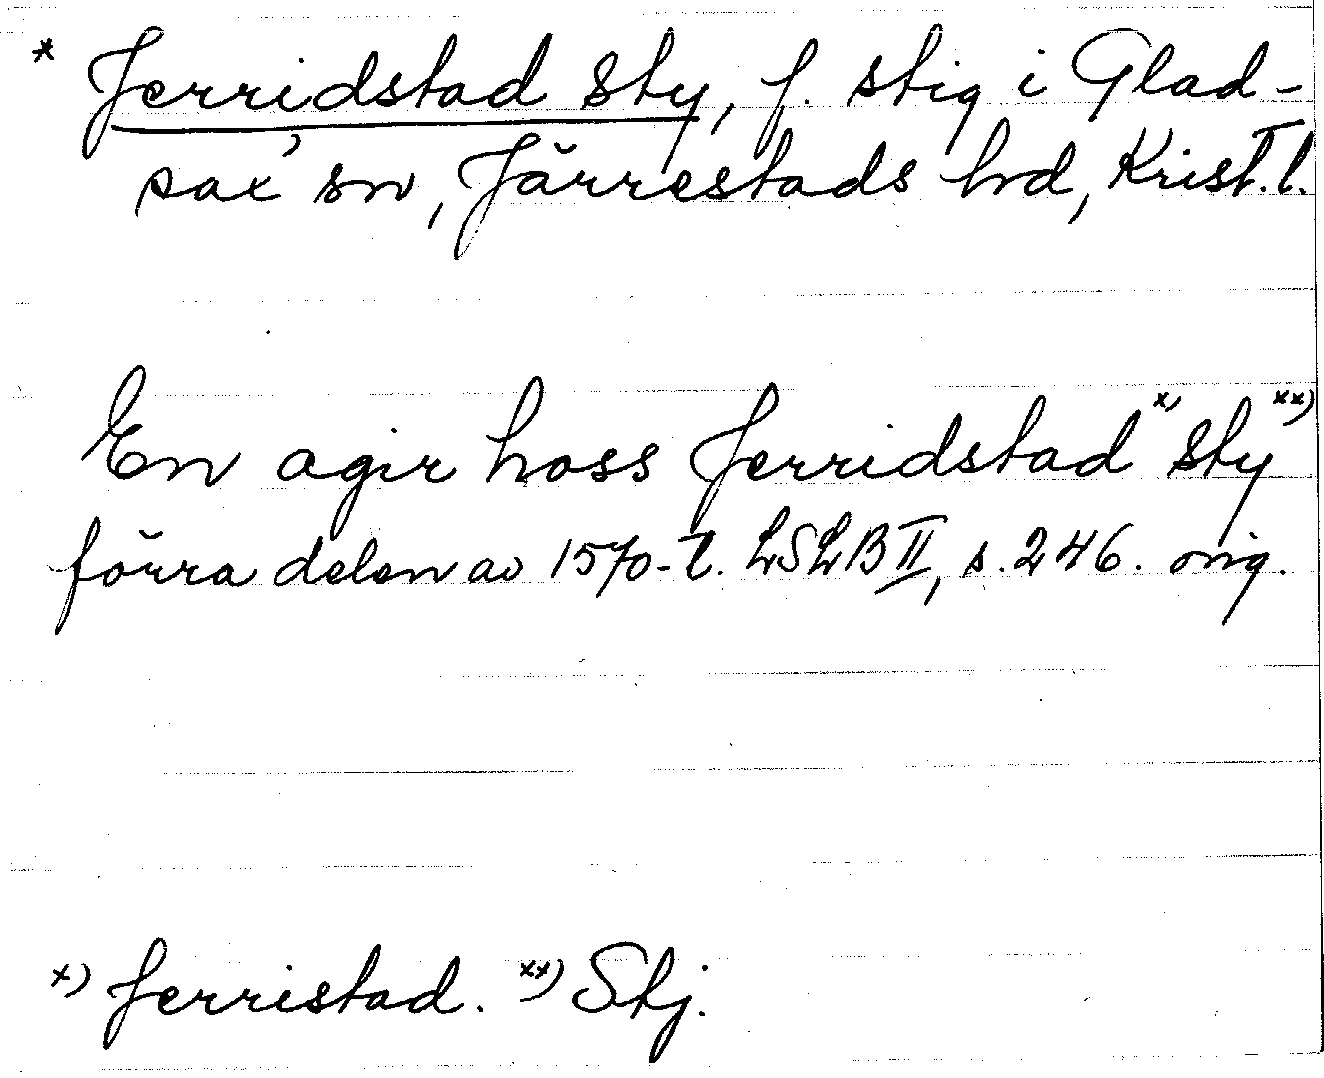 * Jerridstad sty, f. stig i Glad-
sax' sn, Järrestads hd, Krist. l.
En agir hoss Jerridstad x) sty xx)
förra delen av 1570-t. LSLB II, s. 246. orig.
x) Jerristad. xx) Stj.